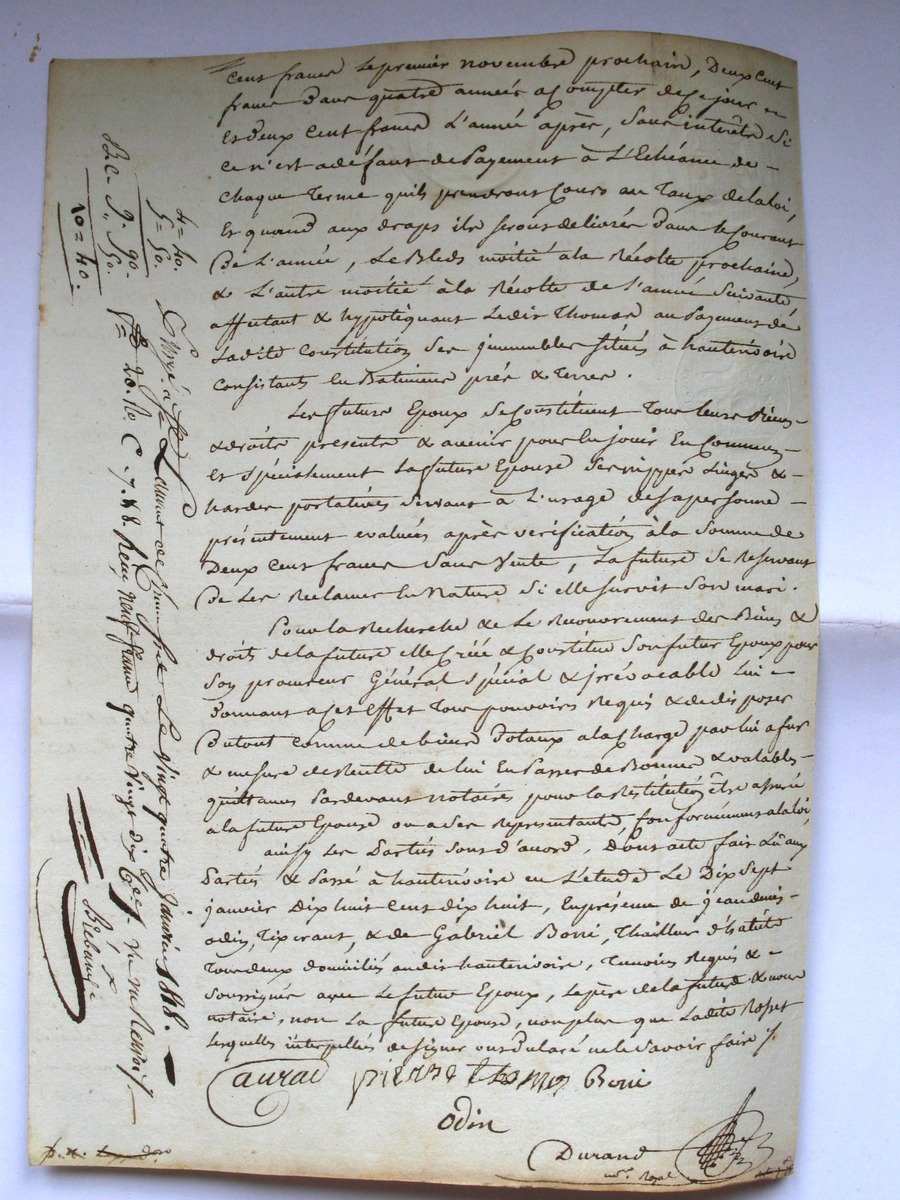 cent francs le premier novembre prochain, Deux cent
francs dans quatre années a compter de ce jour
et deux cent francs L'année après, sans intérêts si
ce n'est a défaut de Payement à L'Echéance de
chaque Terme quils prendront Cours au Taux de la loi,
Et quand aux draps ils seront délivrés dans le Courant
De L'année, Le Bleds moitié à la Récolte prochaine,
& L'autre moitié à la Récolte de l'année suivante,
affectant & hypotéquant Ledit Thomas au Payement de
Ladite Constitution ses immeubles situés à hauterivoire
Consistants En Batiments prés & Terres.
Les future Epoux se Constituent Tous leurs Biens
& droits presents & avenir pour En jouir En Commun
et spécialement la future Epouse ses nippes Linges &
hardes portatives servant à L'usage de sa personne
présentement evaluées après verification à la somme de
Deux cent francs sans Vente, La future se Reservant
De Les Reclamer En Nature si elle survit son mari.
Pour la Recherche & Le Recouvrement des Biens &
droits de la future elle Créé & Constitue son futur Epoux pour
son procureur Général spécial & irrévocable Lui
Donnant a cet Effet Tous pouvoirs Requis & de disposer
Du tout comme de biens Dotaux a la charge par lui a fur
& mesure de Recette de lui En Passer de Bonnes & valables
quittances Pardevant notaires pour la Restitution être assurée
a la future Epouse ou a ses Représentants, Conformément a la loi,
ainsy les Parties sont d'acord, Dont acte fait Lû aux
Parties & Passé à hauterivoire en L'etude Le Dix sept
janvier Dix huit cent dix huit, En présence de jean denis
odin, Tixerant, & de Gabriel Boni, Thailleur d'habits
Tous deux domiciliés audit hauterivoire, Temoins Requis &
soussignés avec Le futur Epoux, Le père de la future & nous
notaire, non La future Epouse, non plus que Ladite
Lesquelles interpellées de signer ont Déclaré ne le savoir faire
pierre thomas Boni
odin
Durand
not. Royal
4 = 40.
5 = 50.
9. 90.
50.
10 = 40.
à St Laurent de Chamousset Le vingt quatre janvier 1818.
f° 20. R° C. 7. & 8. Reçu neuf francs quatre vingt dix Ces